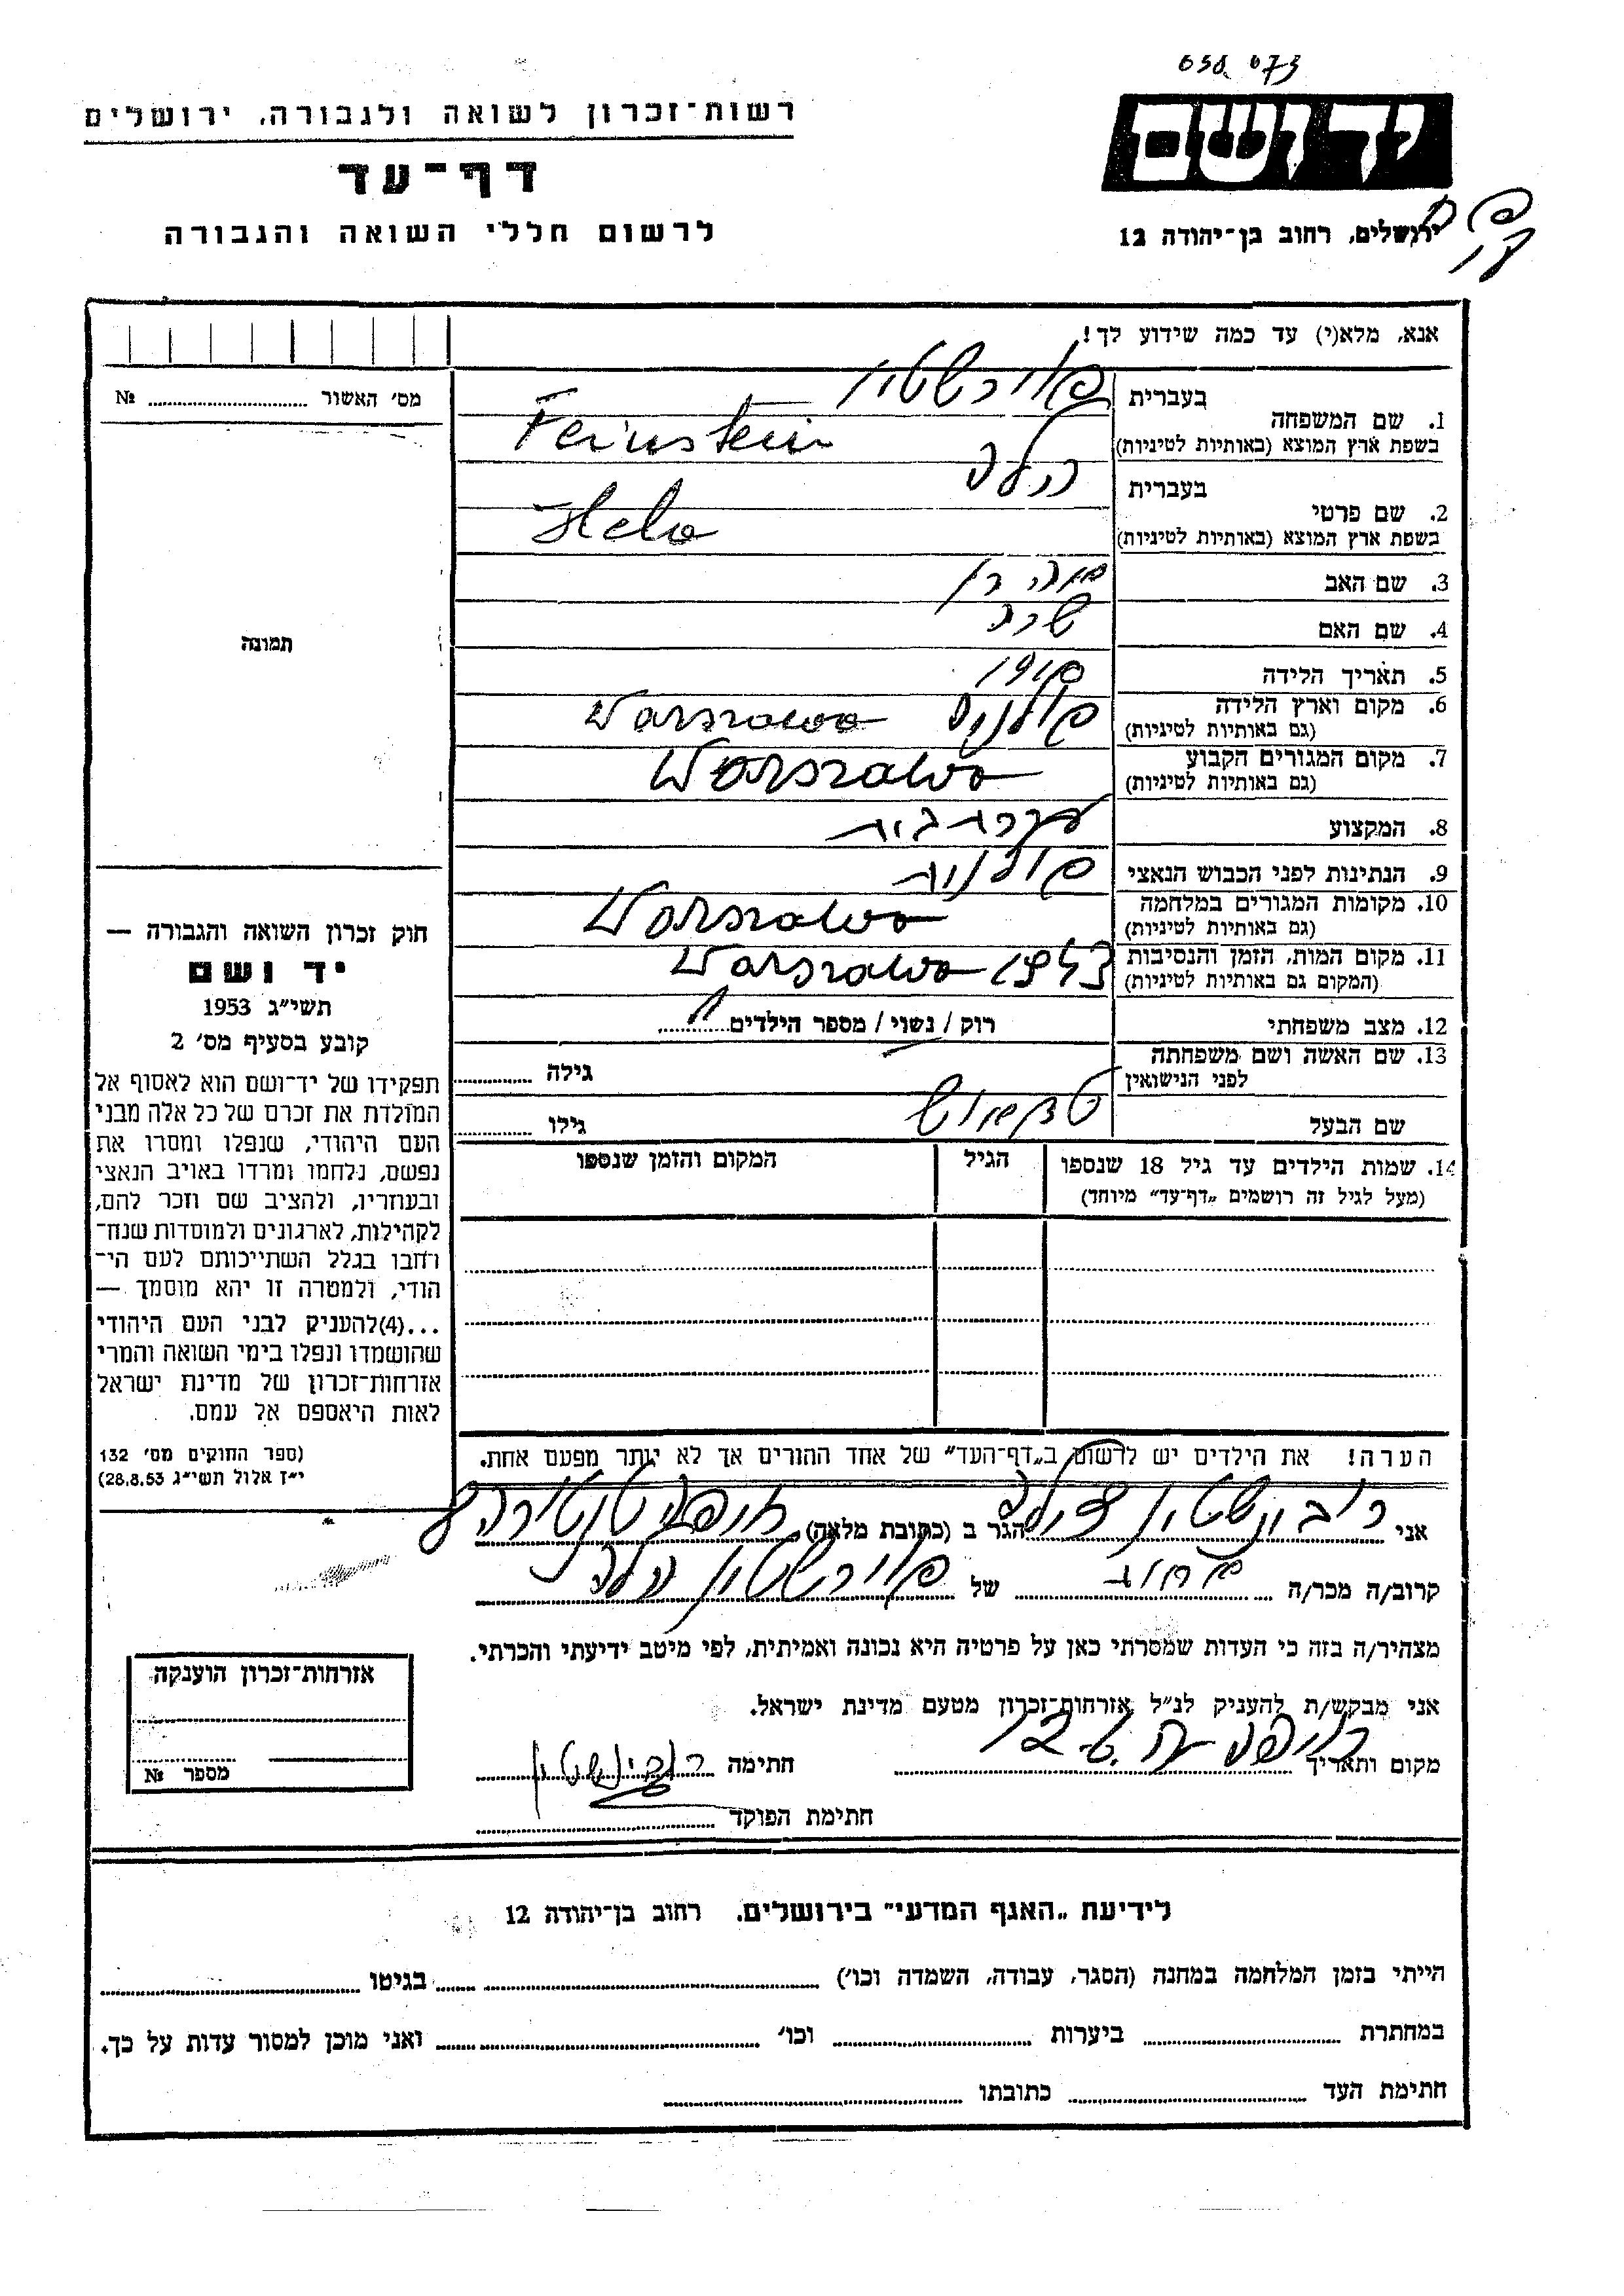 רשות־זכרון לשואה ולגבורה, ירושלים
דף־עד
לרשום חללי השואה והגבורה
ידושם
ירושלים, רחוב בן־יהודה 12
אנא, מלא(י) עד כמה שידוע לך!
מס׳ האשור № 
1. שם המשפחה
בעברית
בשפת ארץ המוצא (באותיות לטיניות) Feinstein
2. שם פרטי
בעברית הלה
בשפת ארץ המוצא (באותיות לטיניות) Hela
3. שם האב
4. שם האם שרה
5. תאריך הלידה
6. מקום וארץ הלידה Warszawa
(גם באותיות לטיניות)
7. מקום המגורים הקבוע Warszawa
(גם באותיות לטיניות)
8. המקצוע עקרת בית
9. הנתינות לפני הכבוש הנאצי פולנית
10. מקומות המגורים במלחמה Warszawa
(גם באותיות לטיניות)
11. מקום המות, הזמן והנסיבות Warszawa
(המקום גם באותיות לטיניות)
12. מצב משפחתי רוק / נשוי / מספר הילדים
13. שם האשה ושם משפחתה
לפני הנישואין גילה
שם הבעל גילו
14. שמות הילדים עד גיל 18 שנספו הגיל המקום והזמן שנספו
(מעל לגיל זה רושמים „דף־עד״ מיוחד)
הערה! את הילדים יש לרשום ב„דף־העד״ של אחד ההורים אך לא יותר מפעם אחת.
תמונה
חוק זכרון השואה והגבורה —
יד ושם
תשי״ג 1953
קובע בסעיף מס׳ 2
תפקידו של יד־ושם הוא לאסוף אל
המולדת את זכרם של כל אלה מבני
העם היהודי, שנפלו ומסרו את
נפשם, נלחמו ומרדו באויב הנאצי
ובעוזריו, ולהציב שם וזכר להם,
לקהילות, לארגונים ולמוסדות שנח־
רחבו בגלל השתייכותם לעם הי־
הודי, ולמטרה זו יהא מוסמך —
...(4)להעניק לבני העם היהודי
שהושמדו ונפלו בימי השואה והמרי
אזרחות־זכרון של מדינת ישראל
לאות היאספם אל עמם.
(ספר החוקים מס׳ 132
י״ז אלול תשי״ג 28.8.53)
אני רובינשטין הגר ב (כתובת מלאה)
קרוב/ה מכר/ה של פיינשטין הלה
מצהיר/ה בזה כי העדות שמסרתי כאן על פרטיה היא נכונה ואמיתית, לפי מיטב ידיעתי והכרתי.
אני מבקש/ת להעניק לנ״ל אזרחות־זכרון מטעם מדינת ישראל.
מקום ותאריך חתימה
חתימת הפוקד
אזרחות־זכרון הוענקה
מספר №
לידיעת „האגף המדעי״ בירושלים, רחוב בן־יהודה 12
הייתי בזמן המלחמה במחנה (הסגר, עבודה, השמדה וכו׳) בגיטו
במחתרת ביערות וכו׳ ואני מוכן למסור עדות על כך.
חתימת העד כתובתו